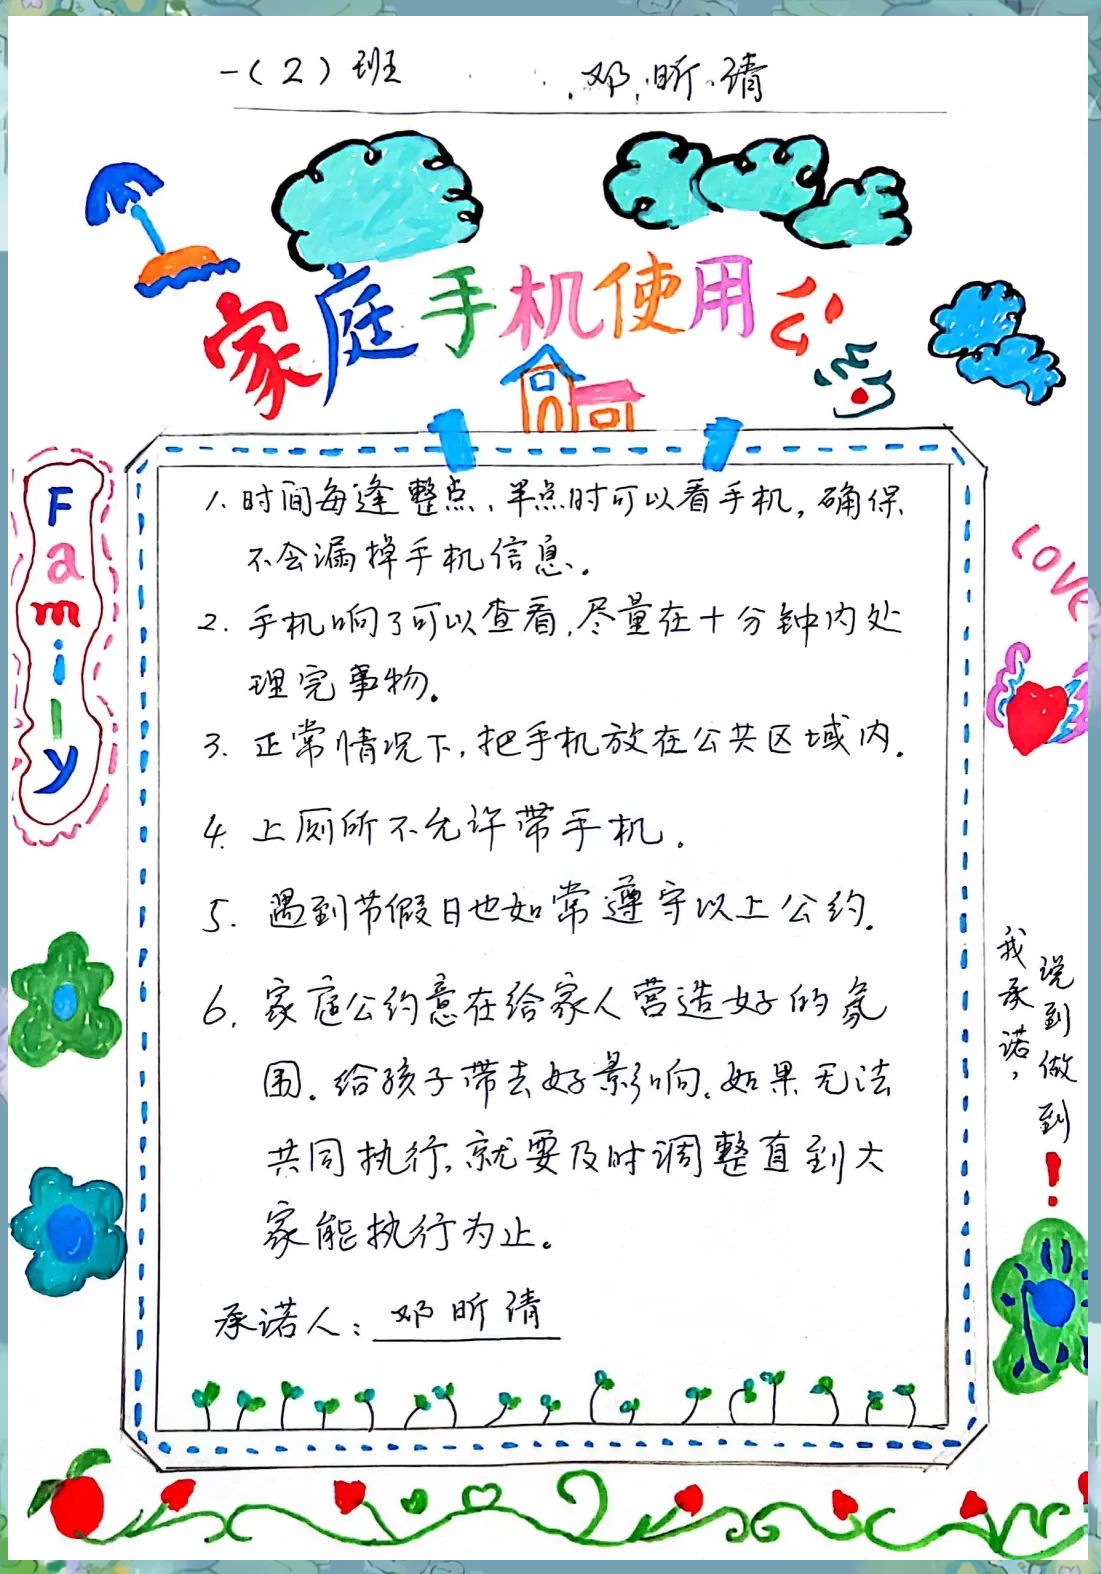 一（2）班 邓昕清
家庭手机使用公约
Family
LOVE
1. 时间每逢整点、半点时可以看手机，确保
不会漏掉手机信息。
2. 手机响了可以查看，尽量在十分钟内处
理完事物。
3. 正常情况下，把手机放在公共区域内。
4. 上厕所不允许带手机。
5. 遇到节假日也如常遵守以上公约。
6. 家庭公约意在给家人营造好的氛
围。给孩子带去好影响。如果无法
共同执行，就要及时调整直到大
家能执行为止。
承诺人：邓昕清
我承诺，
说到做到！